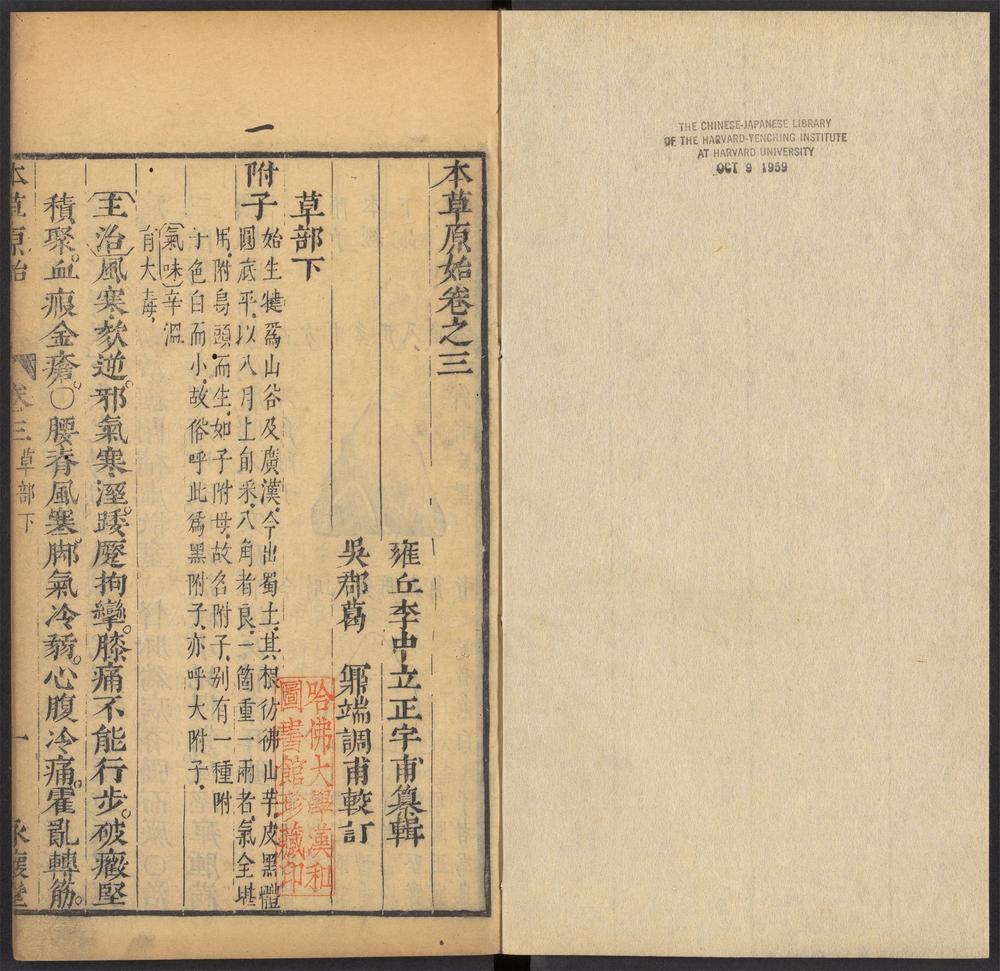 THE CHINESE-JAPANESE LIBRARY
OF THE HARVARD-YENCHING INSTITUTE
AT HARVARD UNIVERSITY
OCT 9 1959
本草原始卷之三
雍丘李中立正宇甫纂輯
吳郡葛鼐端調甫較訂
草部下
一
附子
始生犍爲山谷及廣漢今出蜀土其根彷彿山芋皮黑體
圓底平以八月上旬采八角者良一箇重一兩者氣全堪
用附烏頭而生如子附母故名附子别有一種附
子色白而小故俗呼此爲黑附子亦呼大附子
氣味辛溫
有大毒
主治風寒欬逆邪氣寒溼踒躄拘攣膝痛不能行步破癥堅
積聚血瘕金瘡〇腰脊風寒脚氣冷弱心腹冷痛霍亂轉筋
本草原始 卷三 草部下 一 永懷堂
哈佛大學漢和
圖書館珍藏印